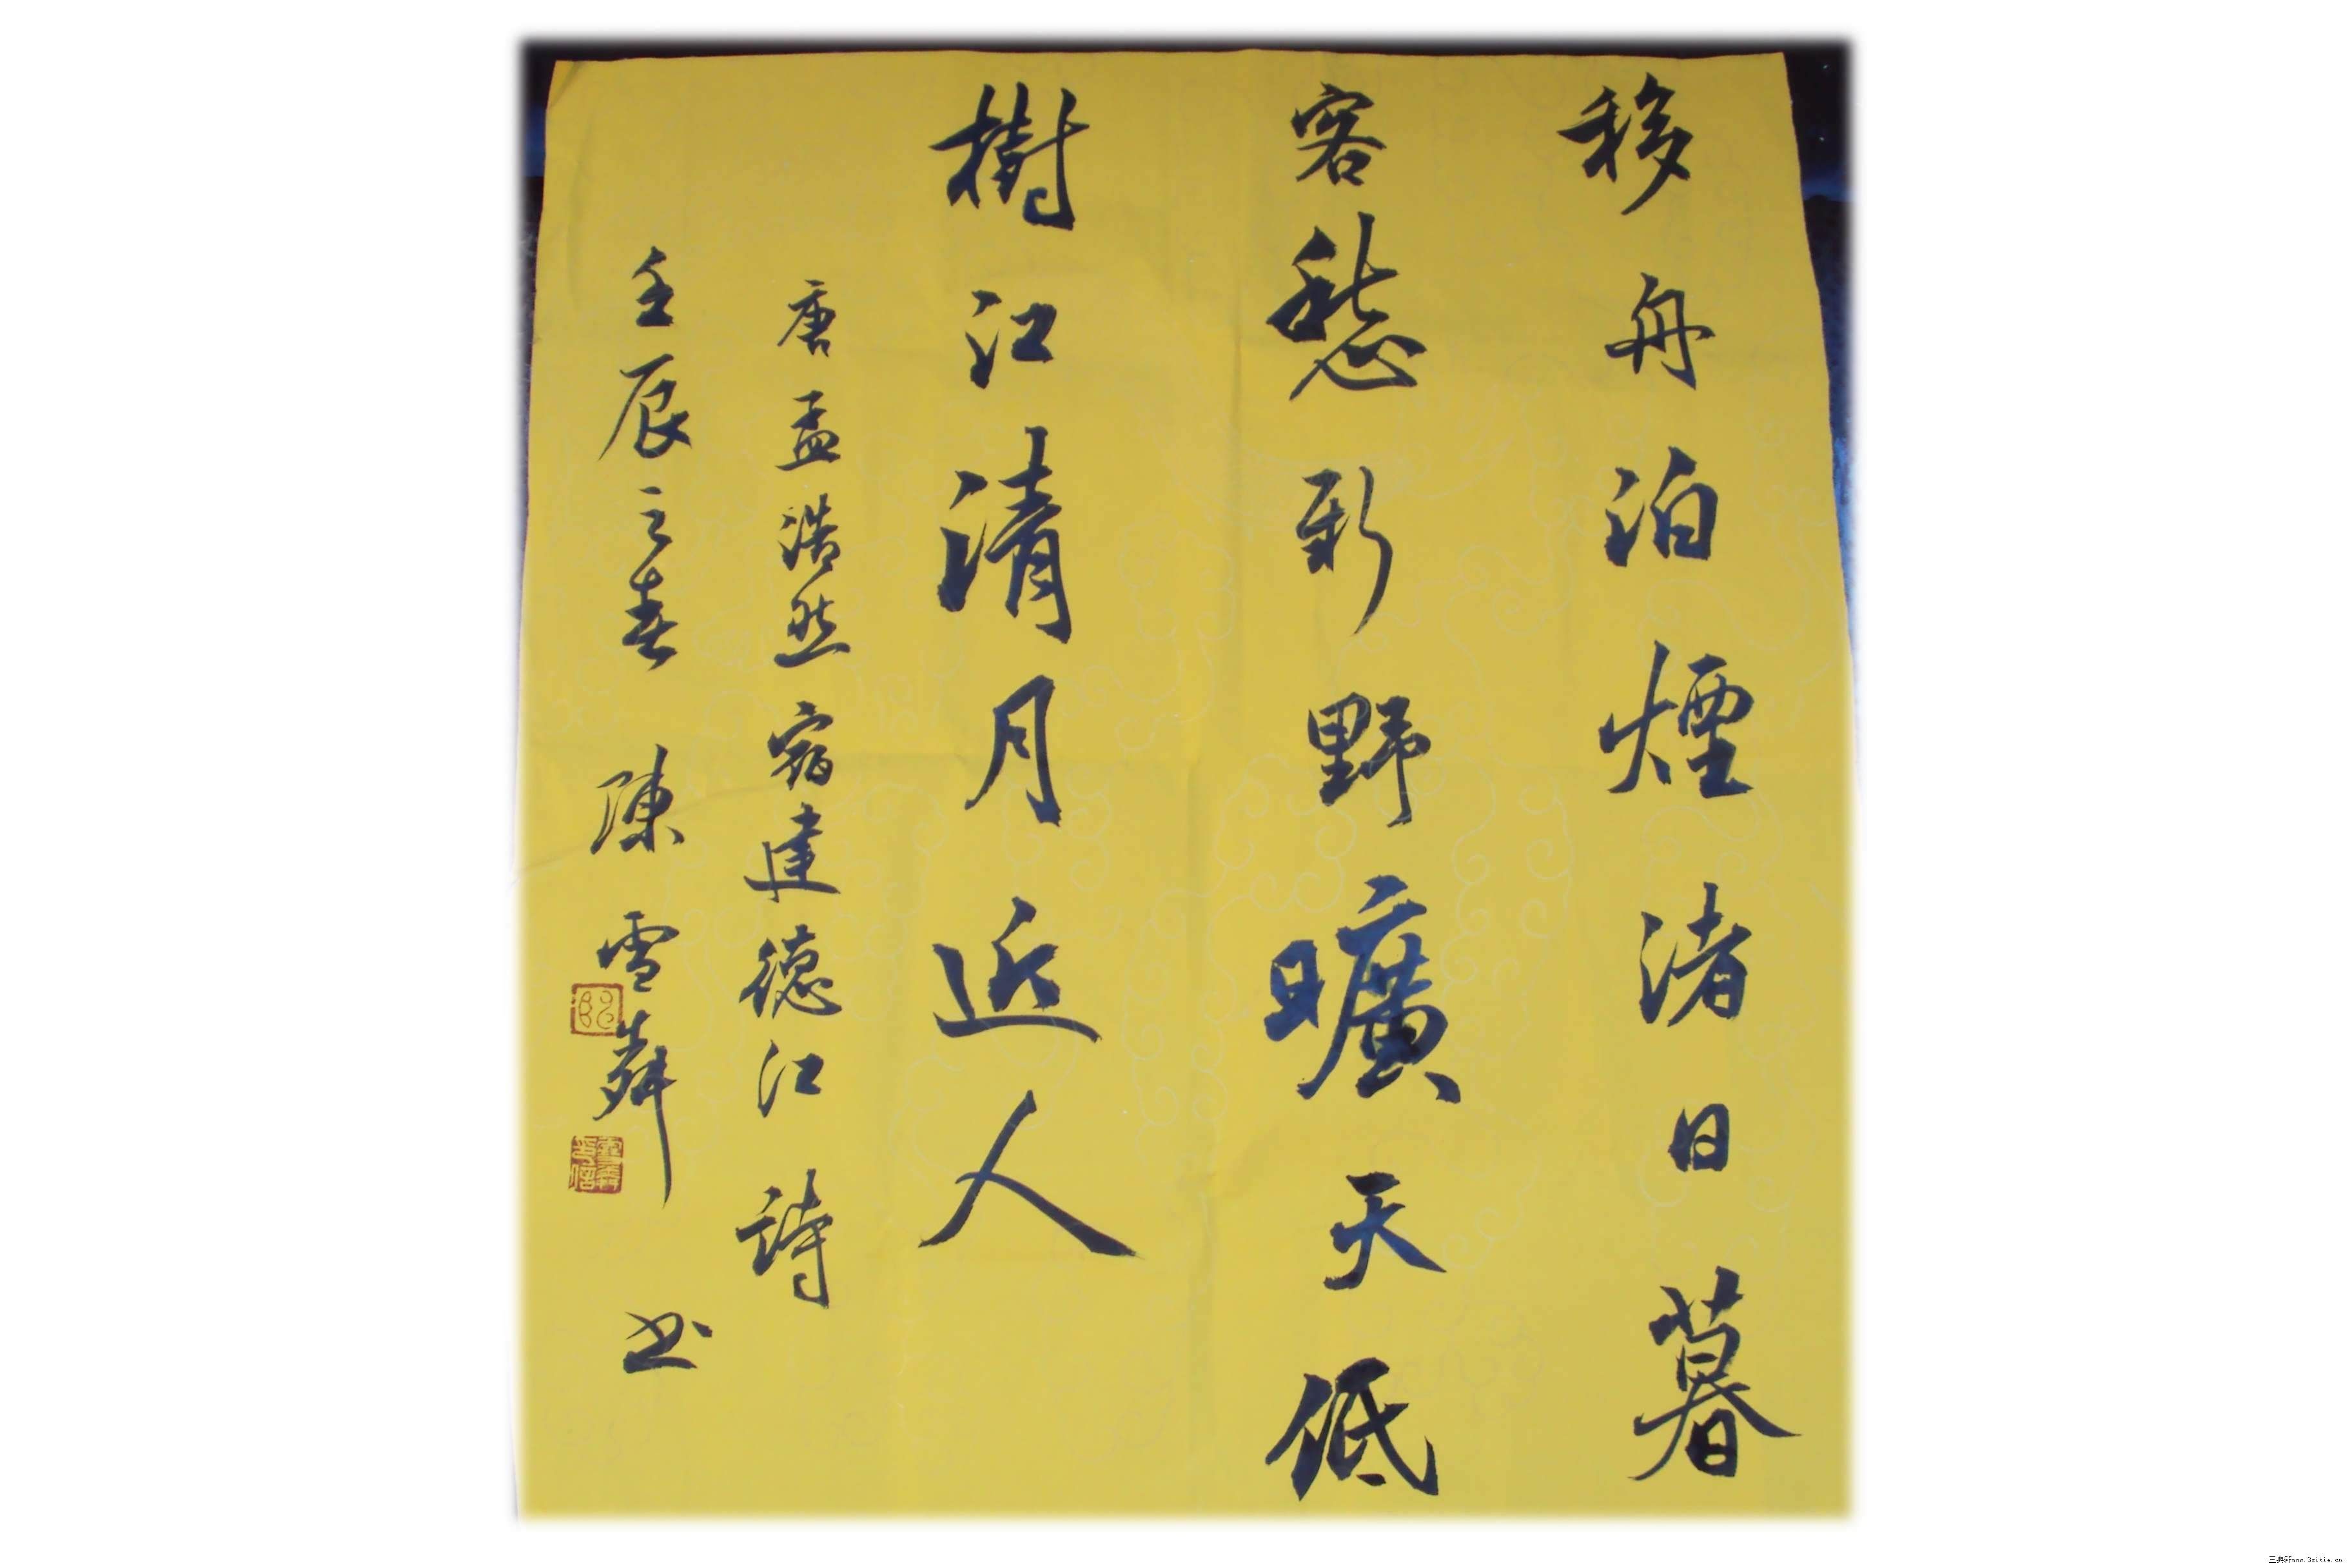 移舟泊煙渚日暮
客愁新野曠天低
樹江清月近人
唐孟浩然宿建德江詩
壬辰之春 陳雪舞书
三典轩www.3zitie.cn